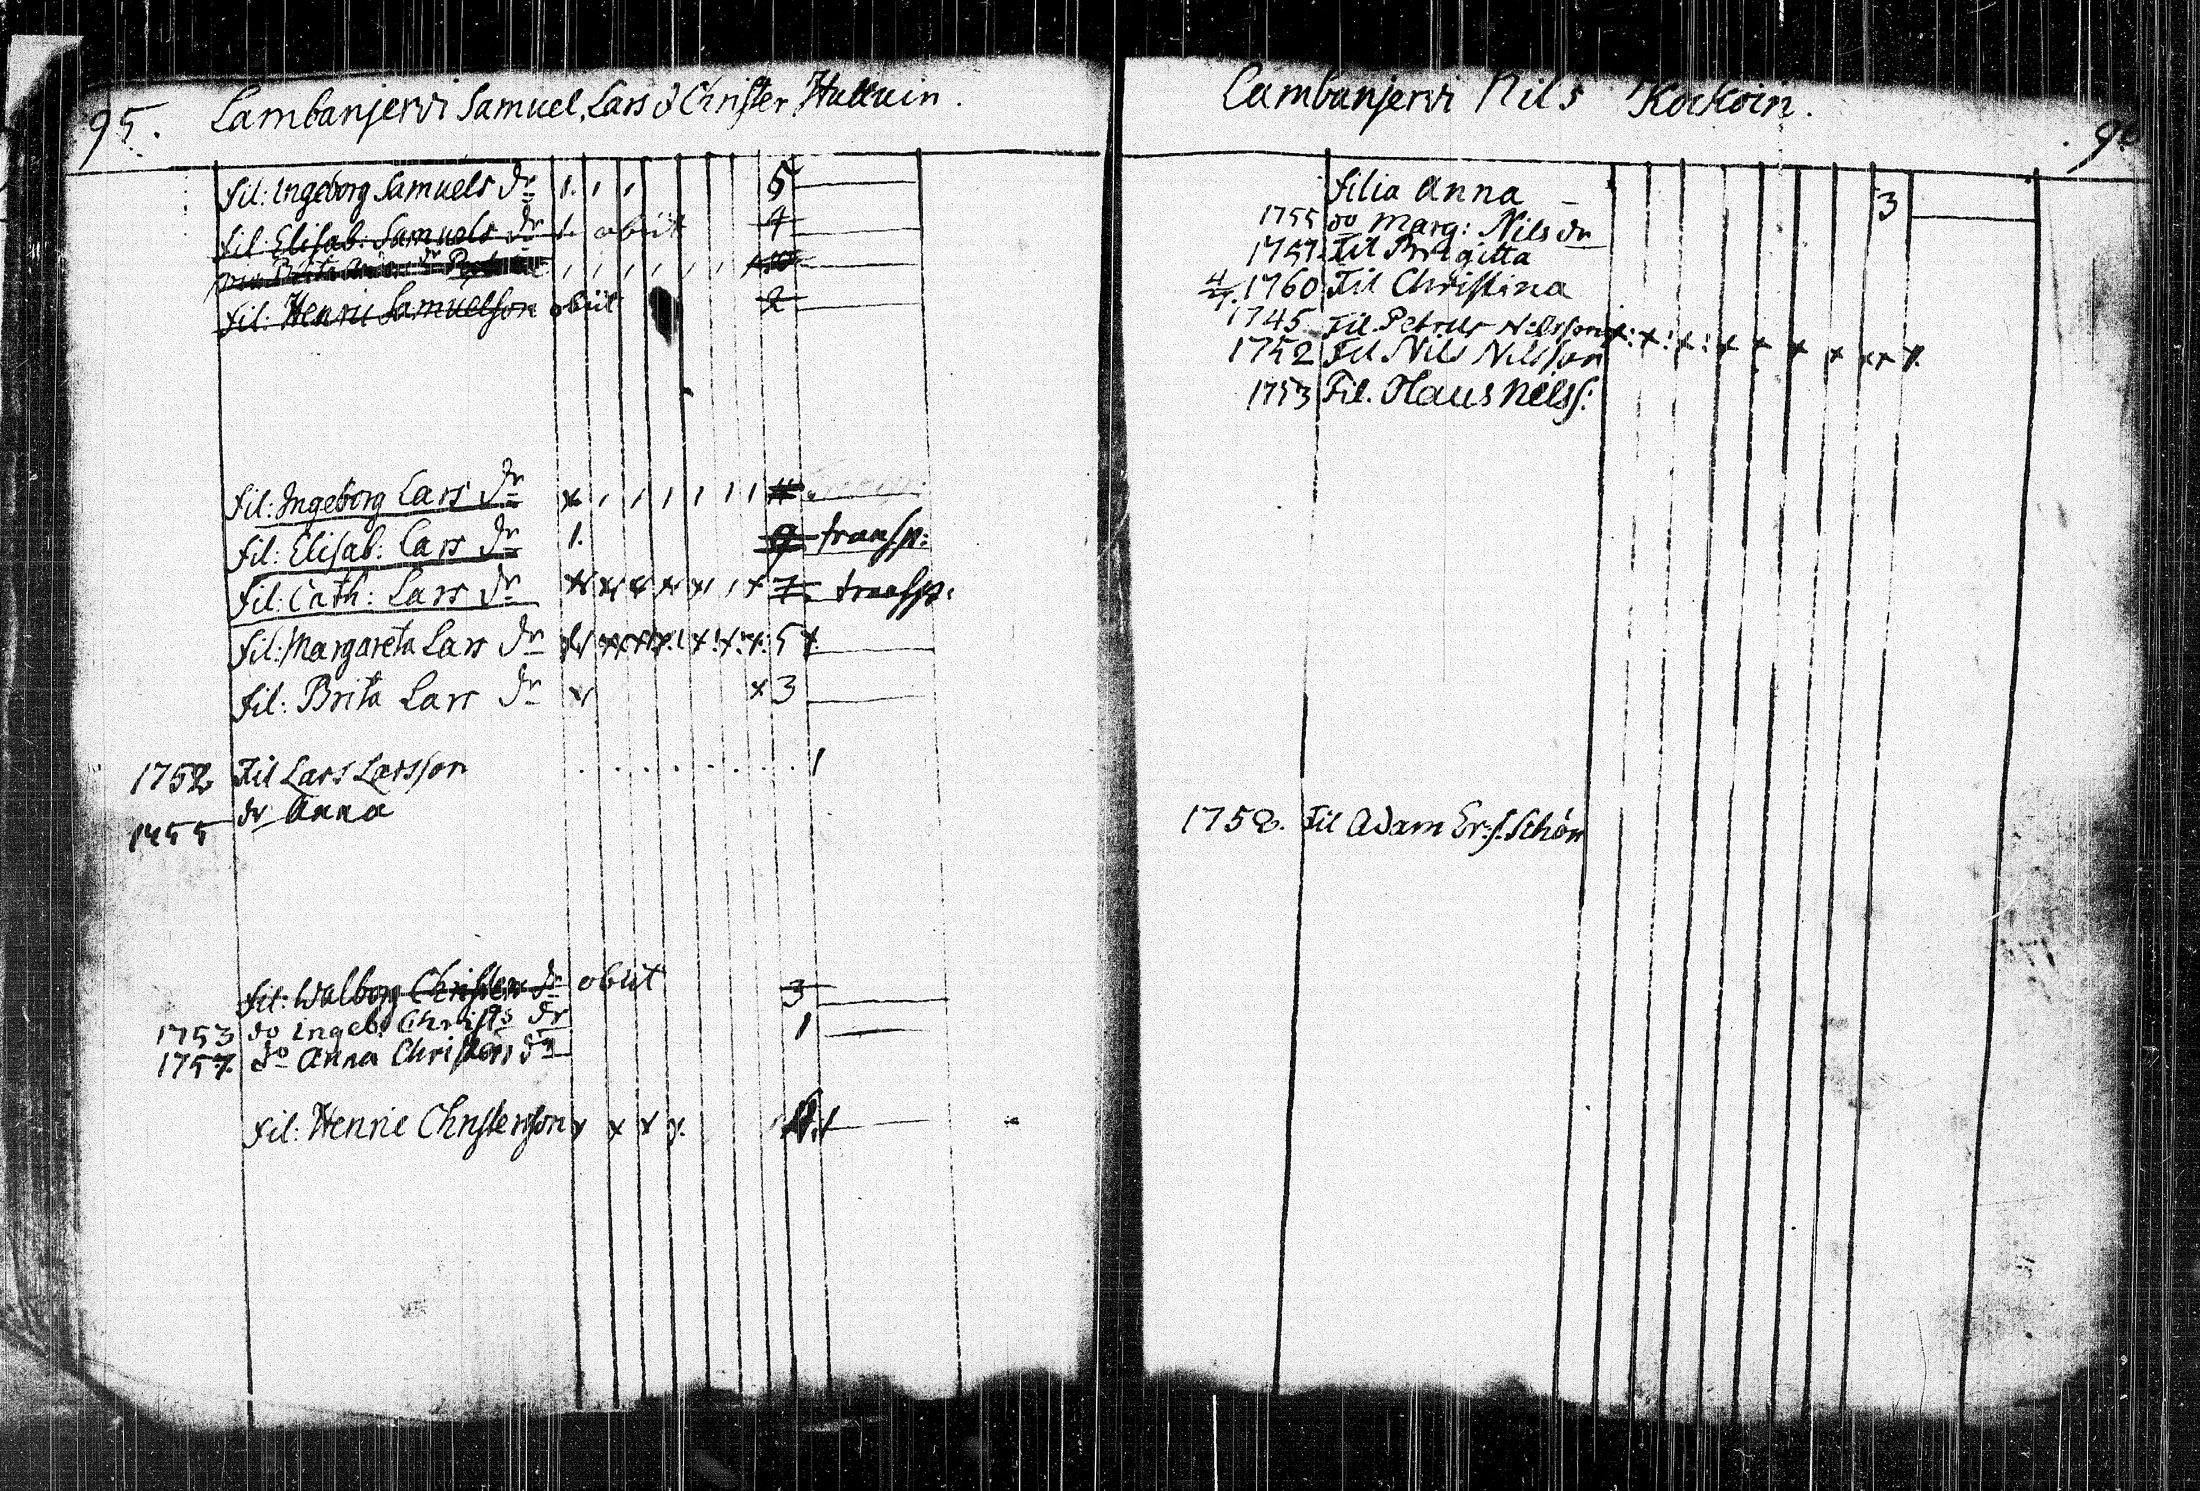 95. Lambanjervi Samuel, Lars & Christer Huttuin.
fil: Ingeborg Samuels dr 1. , , 5
fil: Elisab: Samuels dr 1. obiit 4
fil: Henric Samuelson obiit 2
fil: Ingeborg Lars dr x , , , , , ,
fil: Elisab: Lars dr 1. 9 transp:
fil: Cath: Lars dr 7. transp:
fil: Margareta Lars dr 5
fil: Brita Lars dr x x 3
1752 Fil Lars Larsson 1
dr Anna
1755
fil: Walborg Christers dr obiit 3
1753 do Ingeb. Christs dr 1
1757 do Anna Christers dr
fil: Henric Christerson x x x x.
Lambanjervi Nils Kockoin.
filia Anna 3
1755 do Marg: Nils dr
1757. Fil Brigitta
1760 Fil Christina
1745 Fil. Petrus Nilsson x: x: x: x x x x x x
1752 Fil Nils Nilsson
1753 Fil. Olaus Nilss:
1758. Fil Adam Er:s. Schön